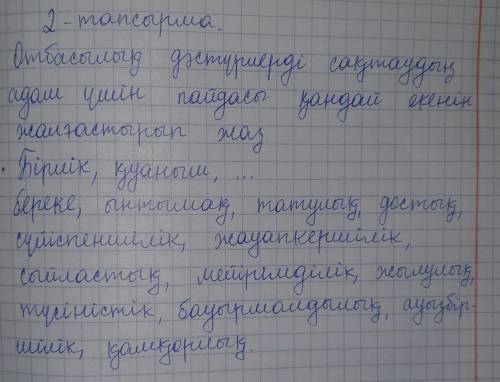 2-тапсырма.
Отбасылық дәстүрлерді сақтаудың
адам үшін пайдасы қандай екенін
жалғастырып жаз.
Бірлік, қуаныш, ...
береке, ынтымақ, татулық, достық,
сүйіспеншілік, жауапкершілік,
сыйластық, мейірімділік, жылулық,
түсіністік, бауырмалдылық, ауызбір-
шілік, қамқорлық.